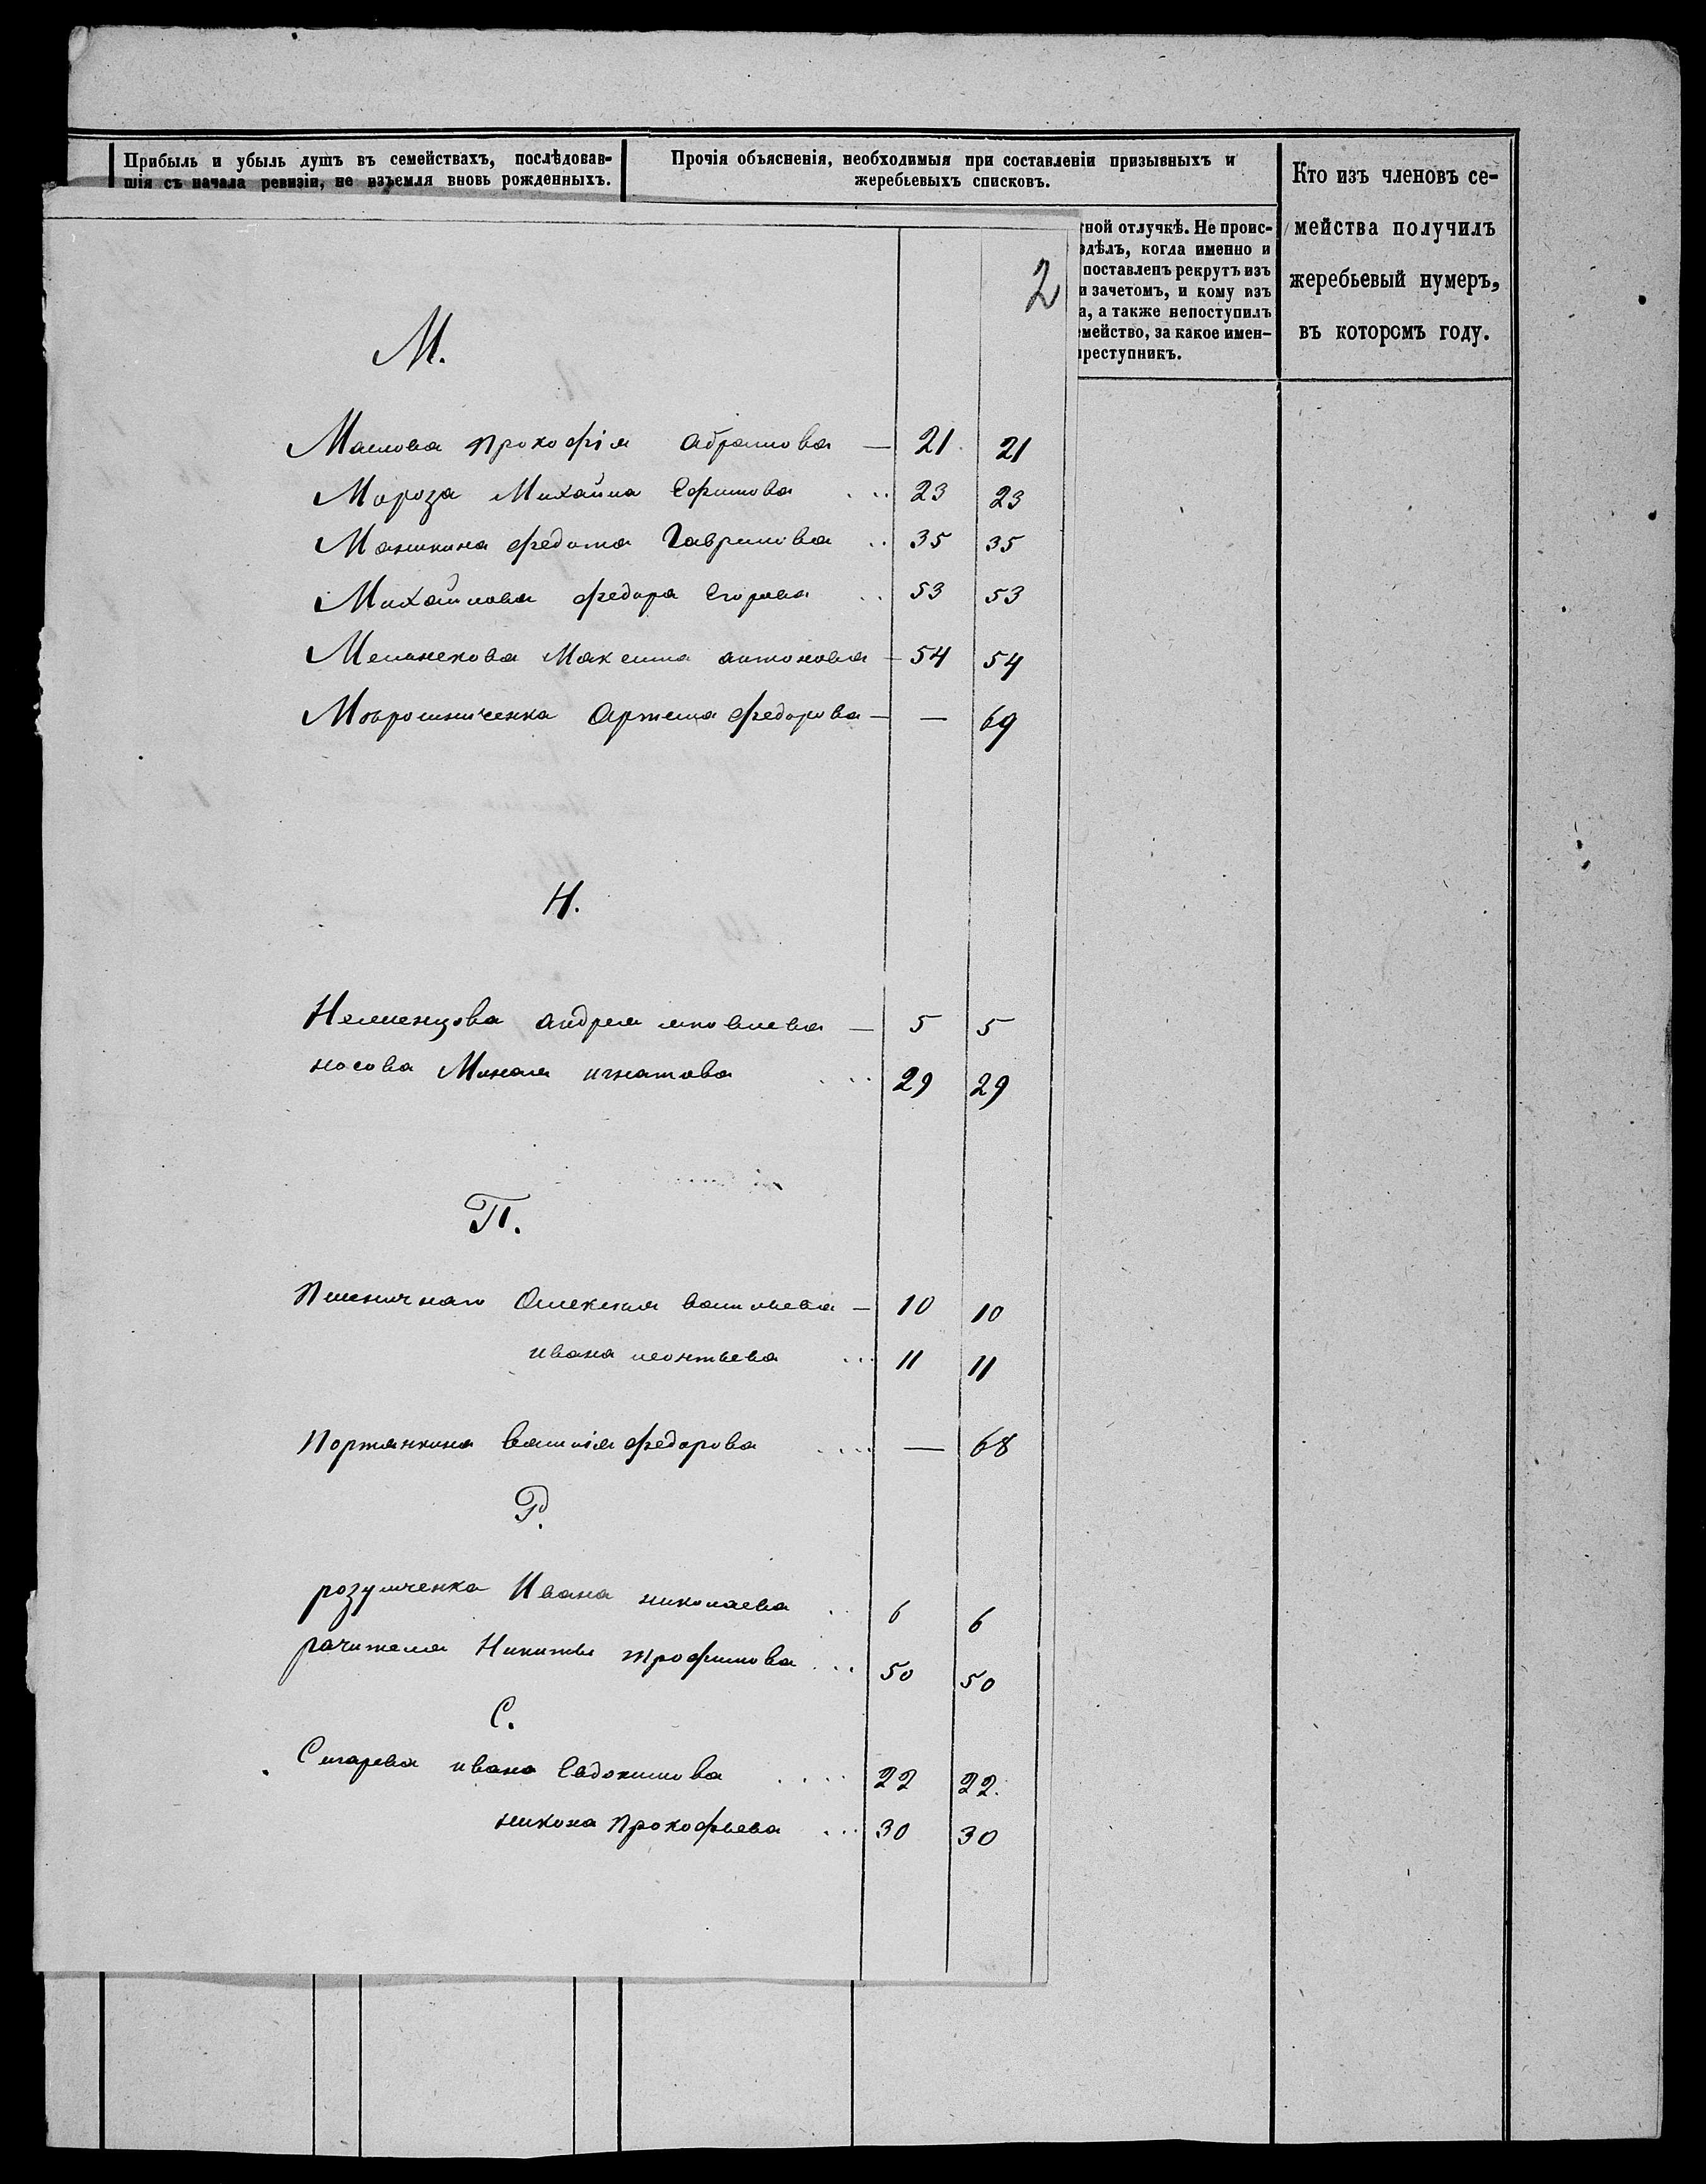 Прибыль и убыль душъ въ семействахъ, послѣдовав-
шія съ начала ревизіи, не изъемля вновь рожденныхъ.
Прочія объясненія, необходимыя при составленіи призывныхъ и
жеребьевыхъ списковъ.
Кто изъ членовъ се-
мейства получилъ
жеребьевый нумеръ,
въ которомъ году.
тной отлучкѣ. Не проис-
здѣлъ, когда именно и
поставленъ рекрутъ изъ
и зачетомъ, и кому изъ
а, а также непоступилъ
мейство, за какое имен-
преступникъ.
2
М.
Маслова Прокофія Абрамова — 21 21
Мороза Михайла Ефимова ... 23 23
Маликина Федота Гаврилова .. 35 35
Михайлова Федора Егорова .. 53 53
Мельнекова Максима антонова — 54 54
Артема Федорова — — 69
Н.
Неменцова андрея яковлева — 5 5
носова Миная игнатова ... 29 29
П.
Пшеничнаго Алексея васильева — 10 10
ивана леонтьева ... 11 11
Портянкина василія Федорова .... — 68
Р.
розумченка Ивана николаева .. 6 6
рачителя Никиты трофимова ... 50 50
С.
ивана Евдокимова .... 22 22.
никона Прокофьева ... 30 30